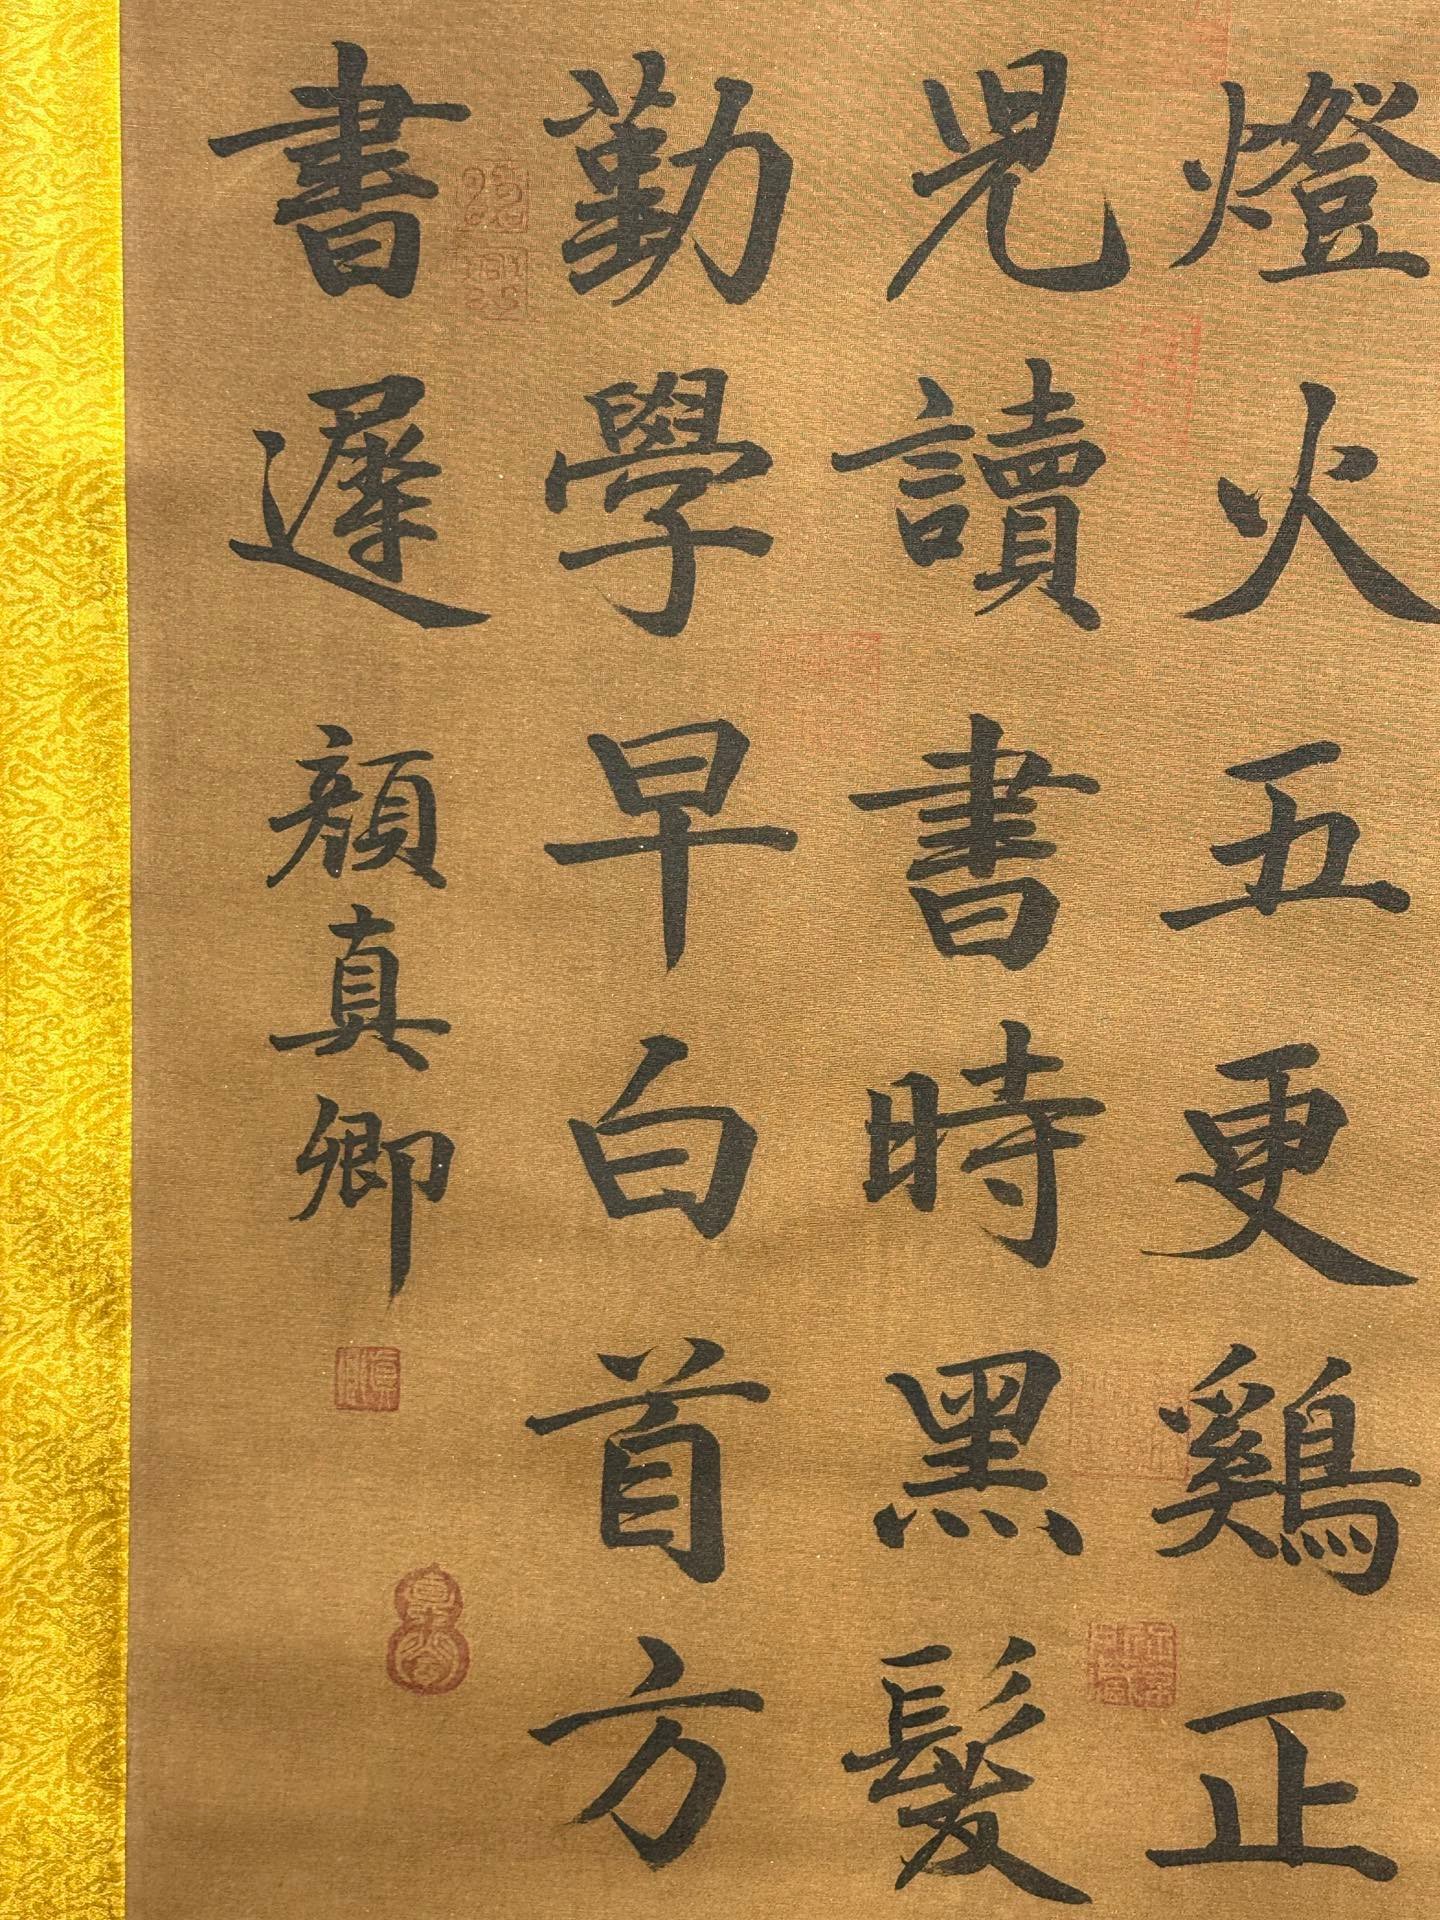 燈火五更鷄正
兒讀書時黑髮
勤學早白首方
書遲
顔真卿